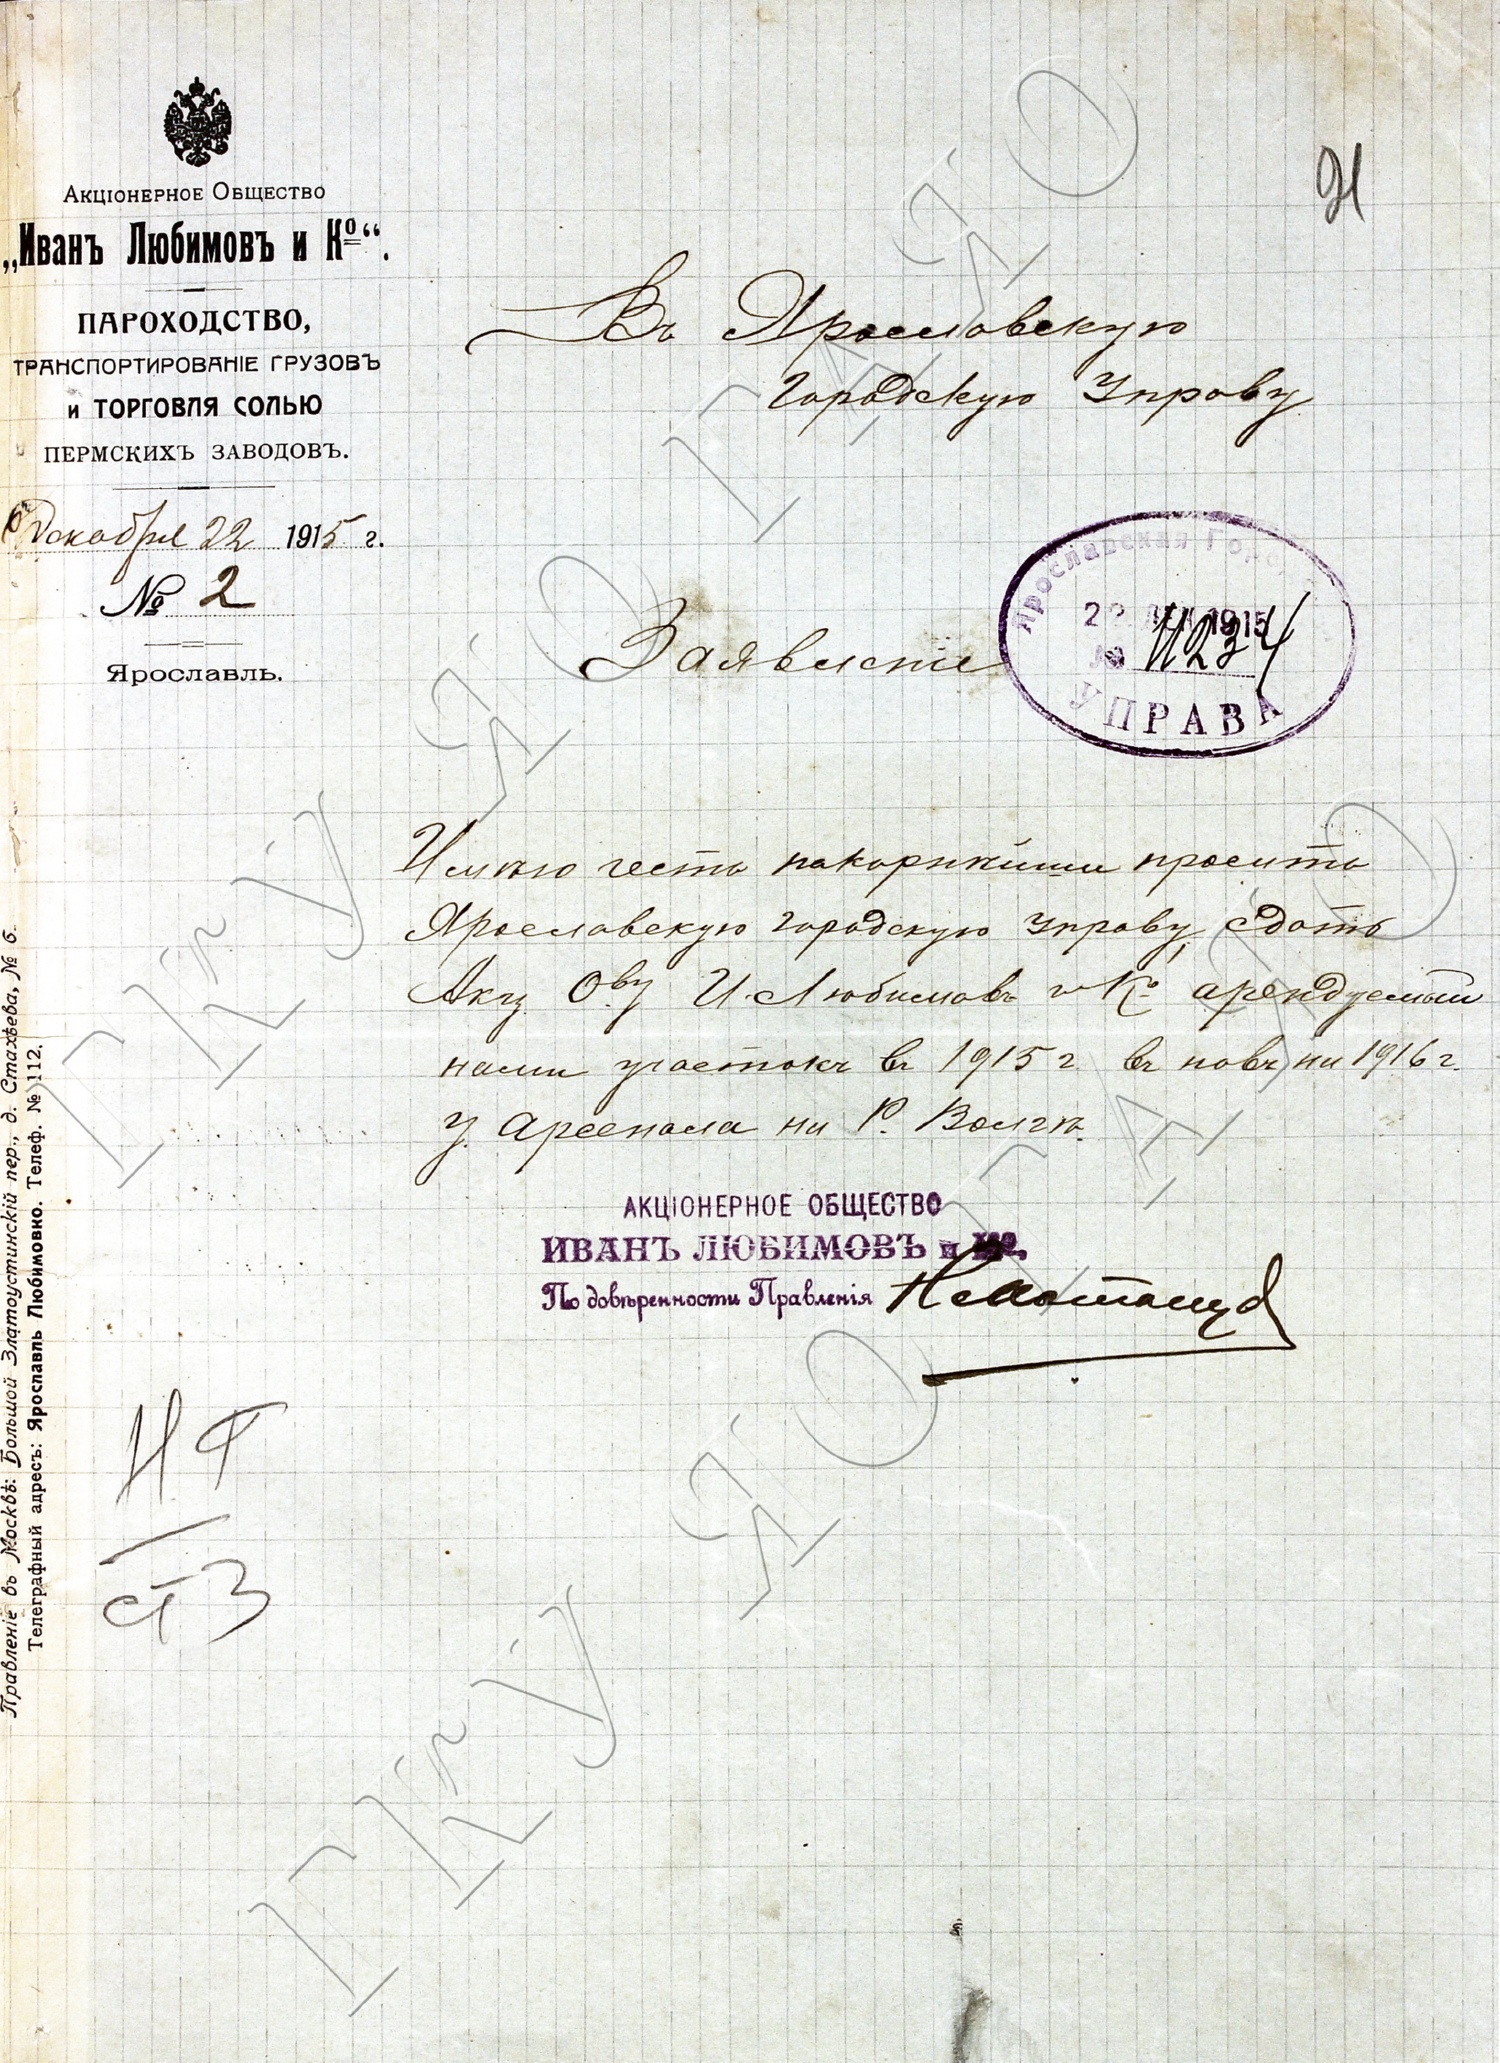 Акціонерное Общество
„Иванъ Любимовъ и Кº“.
ПАРОХОДСТВО,
ТРАНСПОРТИРОВАНІЕ ГРУЗОВЪ
и ТОРГОВЛЯ СОЛЬЮ
ПЕРМСКИХЪ ЗАВОДОВЪ.
Декабря 22 1915 г.
№ 2
Ярославль.
Правленіе въ Москвѣ: Большой Златоустинскій пер., д. Стахѣева, № 6.
Телеграфный адресъ: Ярославль Любимовно. Телеф. № 112.
Въ Ярославскую
Городскую Управу
Ярославская Горо
22 ДЕК 1915
№ 11234
УПРАВА
Заявленіе
Имѣю честь покорнѣйше просить
Ярославскую городскую управу, сдать
Акц. О.ву И. Любимовъ и Кº арендуемый
нами участокъ въ 1915 г. въ новь на 1916 г.
у Арсенала на Р. Волгѣ.
АКЦІОНЕРНОЕ ОБЩЕСТВО
ИВАНЪ ЛЮБИМОВЪ и Кº.
По довѣренности Правленія
ГКУ ЯО ГАЯО
ГКУ ЯО ГАЯО